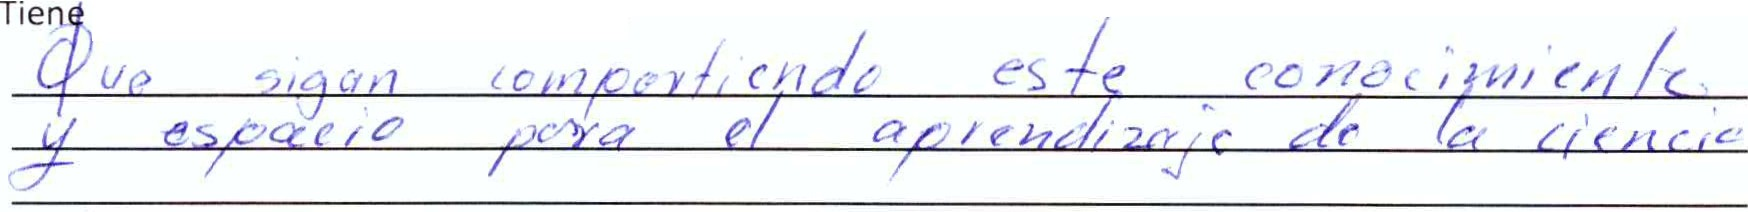 Tiene
Que sigan compartiendo este conocimiento
y espacio para el aprendizaje de la ciencia